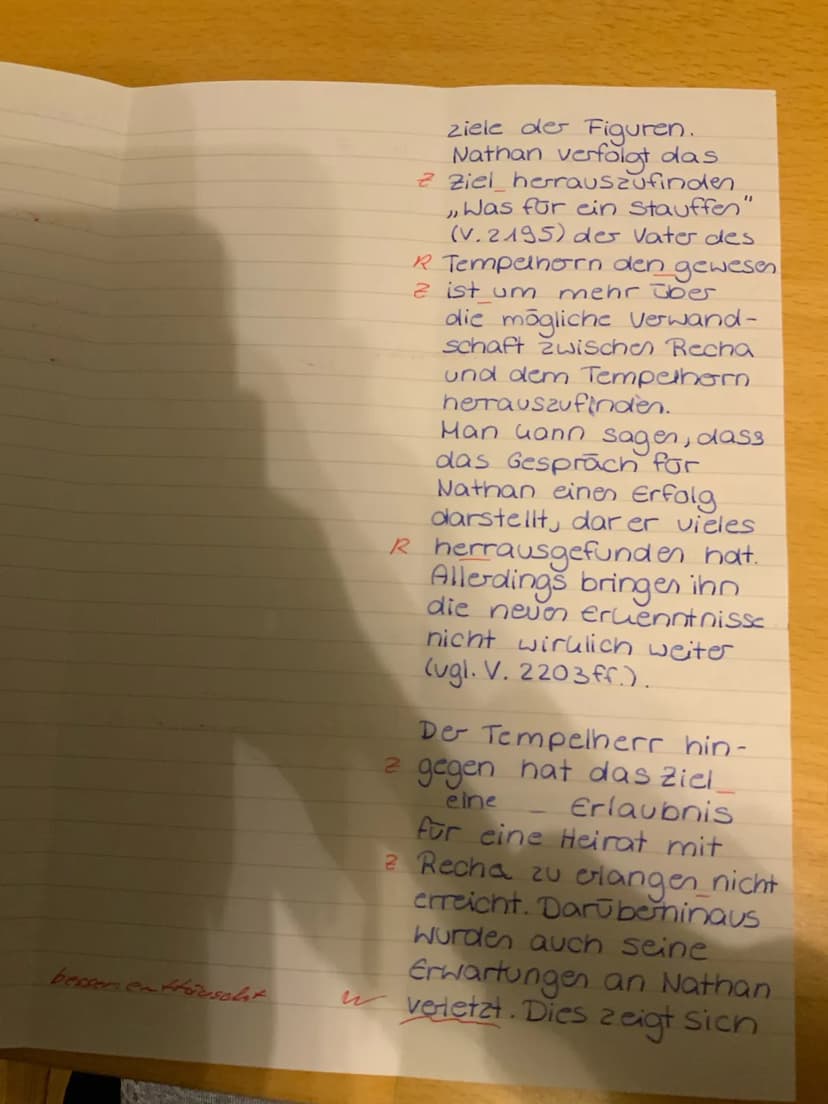 ziele der Figuren.
Nathan verfolgt das
Z Ziel_herrauszufinden
„Was für ein Stauffen"
(V. 2195) der Vater des
R Tempelherrn den gewesen
Z ist_um mehr über
die mögliche Verwand-
schaft zwischen Recha
und dem Tempelherrn
herrauszufinden.
Man kann sagen, dass
das Gespräch für
Nathan einen Erfolg
darstellt, dar er vieles
R herrausgefunden hat.
Allerdings bringen ihn
die neuen Erkenntnisse
nicht wirklich weiter
(vgl. V. 2203ff.).
Der Tempelherr hin-
Z gegen hat das Ziel_
eine _ Erlaubnis
für eine Heirat mit
Z Recha zu erlangen_nicht
erreicht. Darüberhinaus
wurden auch seine
Erwartungen an Nathan
besser: enttäuscht W verletzt. Dies zeigt sich